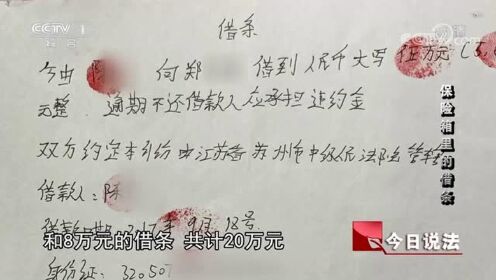 CCTV 1
综合
借条
今由陈 向郑 借到人民币大写伍万元(5,0
元整 逾期不还借款人应承担违约金
双方约定本纠纷由江苏省苏州市中级人民法院管辖
借款人:陈
借款日期:2017年9月18号
身份证:32050
保险箱里的借条
和8万元的借条 共计20万元
今日说法